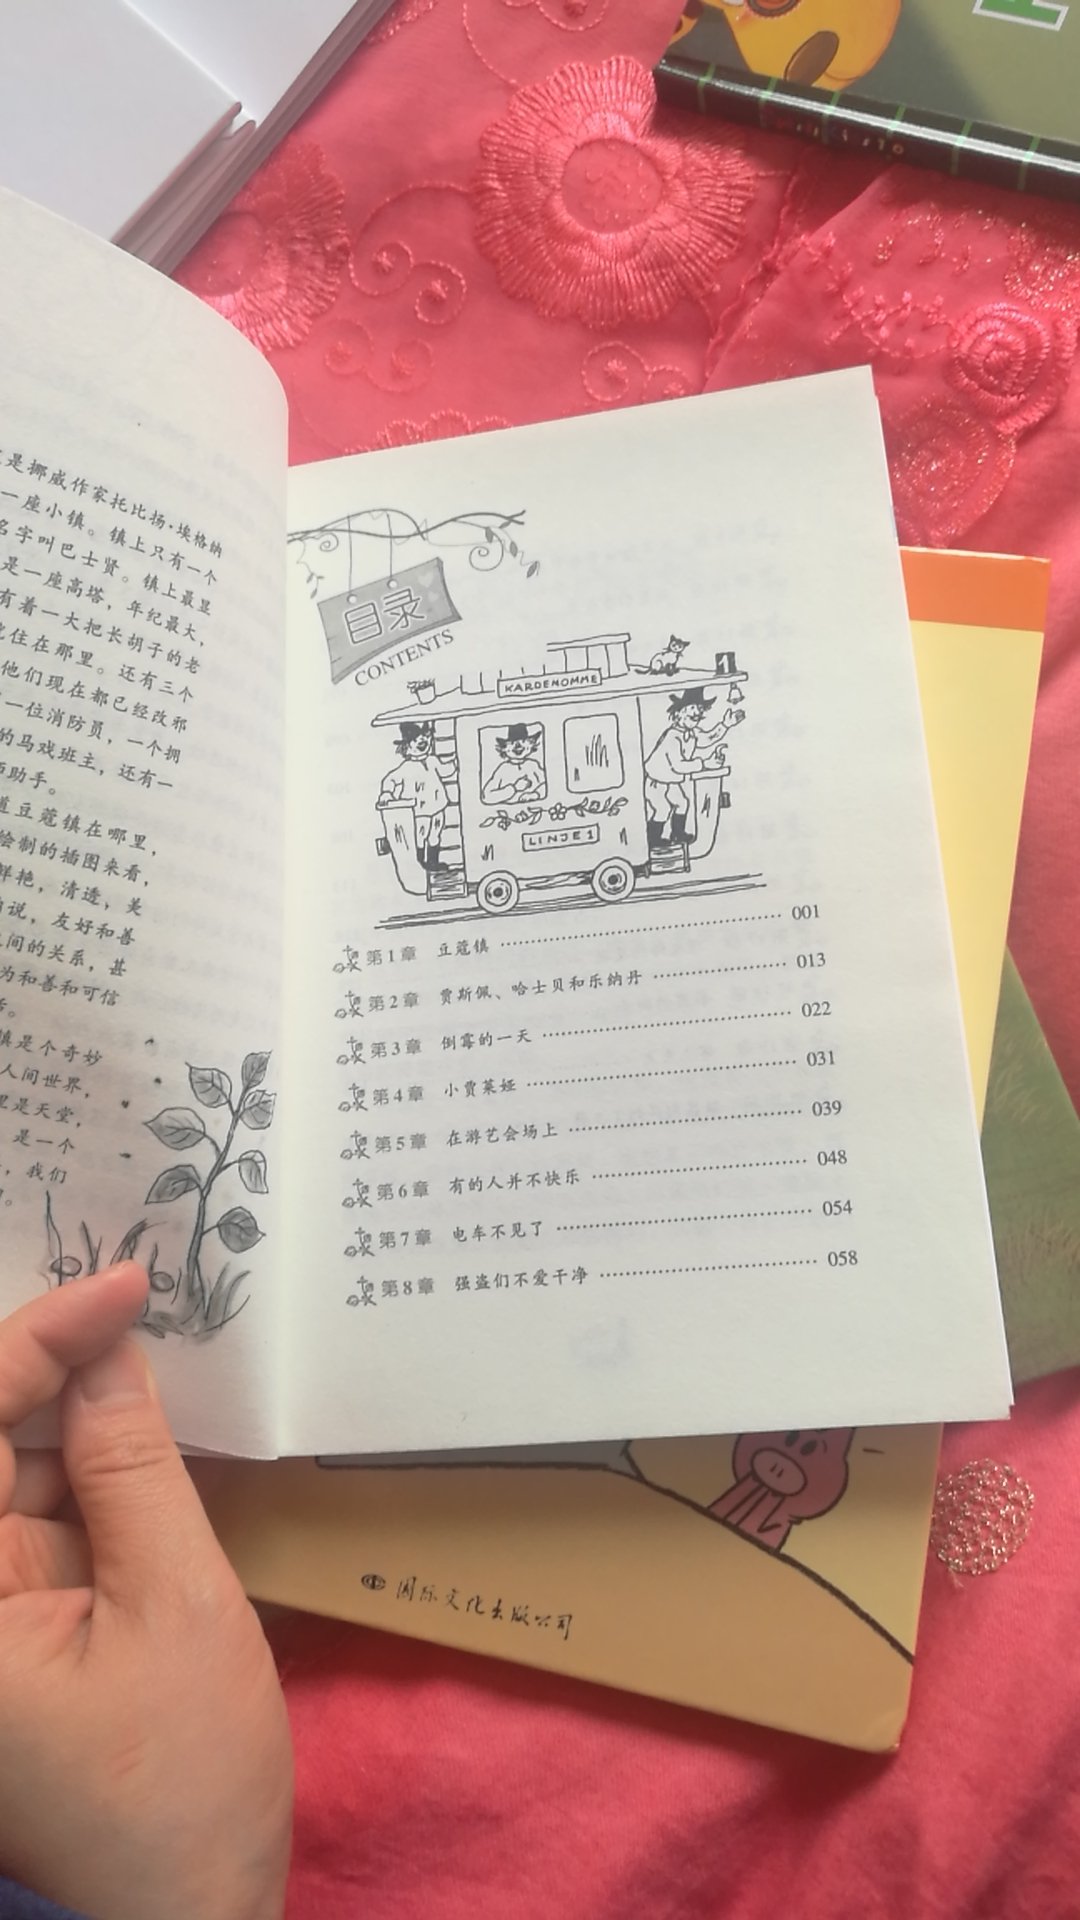 是挪威作家托比扬·埃格纳
一座小镇。镇上只有一个
名字叫巴士贤。镇上最显
是一座高塔，年纪最大，
有着一大把长胡子的老
住在那里。还有三个
他们现在都已经改邪
一位消防员，一个拥
的马戏班主，还有一
助手。
道豆蔻镇在哪里，
绘制的插图来看，
鲜艳，清透，美
说，友好和善
之间的关系，甚
为和善和可信
镇是个奇妙
人间世界，
里是天堂，
是一个
，我们
目录
CONTENTS
KARDEMOMME
1
LINJE 1
第1章 豆蔻镇 001
第2章 贾斯佩、哈士贝和乐纳丹 013
第3章 倒霉的一天 022
第4章 小贾莱娅 031
第5章 在游艺会场上 039
第6章 有的人并不快乐 048
第7章 电车不见了 054
第8章 强盗们不爱干净 058
国际文化出版公司